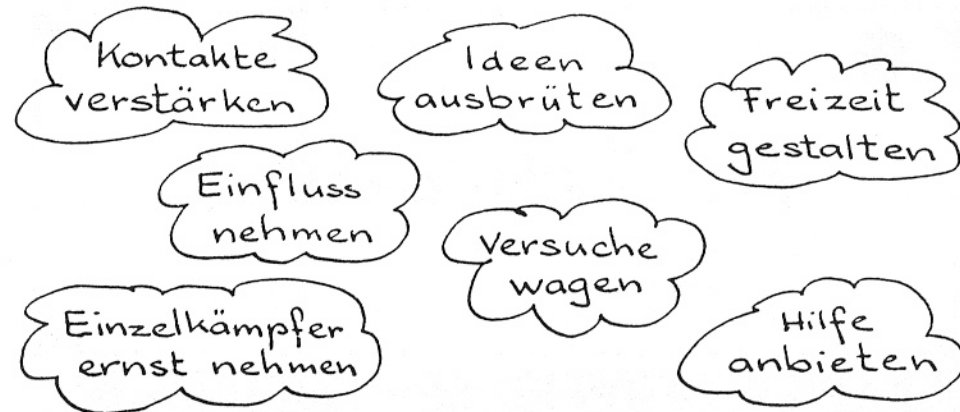 Kontakte
verstärken
Ideen
ausbrüten
Freizeit
gestalten
Einfluss
nehmen
Versuche
wagen
Einzelkämpfer
ernst nehmen
Hilfe
anbieten